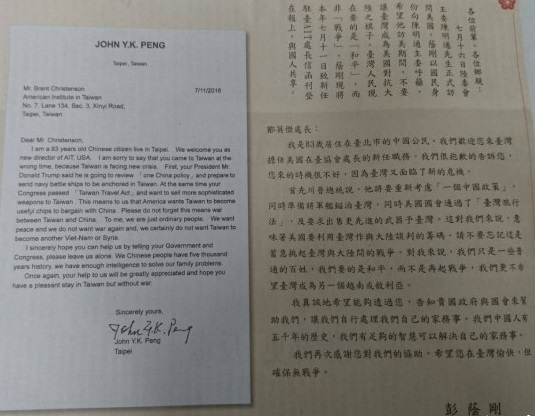 JOHN Y.K. PENG
Taipei, Taiwan
Mr. Brent Christenson
7/11/2018
American Institute in Taiwan
No. 7, Lane 134, Sec. 3, Xinyi Road,
Taipei, Taiwan
Dear Mr. Christenson:
I am a 83 years old Chinese citizen live in Taipei. We welcome you as
new director of AIT, USA. I am sorry to say that you came to Taiwan at the
wrong time, because Taiwan is facing new crisis. First, your President Mr.
Donald Trump said he is going to review 「one China policy」 and prepare to
send navy battle ships to be anchored in Taiwan. At the same time your
Congress passed 「Taiwan Travel Act」 and want to sell more sophisticated
weapons to Taiwan. This means to us that America wants Taiwan to become
useful ships to bargain with China. Please do not forget this means war
between Taiwan and China. To me, we are just ordinary people. We want
peace and we do not want war again and, we certainly do not want Taiwan to
become another Viet-Nam or Syria.
I sincerely hope you can help us by telling your Government and
Congress, please leave us alone. We Chinese people have five thousand
years history, we have enough intelligence to solve our family problems.
Once again, your help to us will be greatly appreciated and hope you
have a pleasant stay in Taiwan but without war.
Sincerely yours,
John Y.K. Peng
John Y.K. Peng
Taipei
各位前輩、各位鄉親：
七月十六日陸委會
主委陳明通先生正式訪
問美國，蔭剛以國民身
份向陳明通主委呼籲，
希望他訪美期間，不要
讓臺灣成為美國對抗大
陸之棋子。臺灣人民現
在要的是「和平」，而
非「戰爭」。蔭剛現將
本年七月十一日致新任
駐臺AIT處長信函刊登
在報上，與國人共享。
酈英傑處長：
我是83歲居住在臺北市的中國公民。我們歡迎您來臺灣
擔任美國在臺協會處長的新任職務。我們很抱歉的告訴您，
您來的時機很不好，因為臺灣又面臨了新的危機。
首先川普總統說，他將要重新考慮「一個中國政策」，
同時準備將軍艦錨泊臺灣，同時美國國會通過了「臺灣旅行
法」，及要求出售更先進的武器予臺灣，這對我們來說，意
味著美國要利用臺灣作與大陸談判的籌碼。請不要忘記這是
蓄意挑起臺灣與大陸間的戰爭。對我來說，我們只是一些普
通的百姓，我們要的是和平，而不是再起戰爭，我們更不希
望臺灣成為另一個越南或敘利亞。
我真誠地希望能夠透過您，告知貴國政府與國會來幫
助我們，讓我們自行處理我們自己的家務事。我們中國人有
五千年的歷史，我們有足夠的智慧可以解決自己的家務事。
我們再次感謝您對我們的協助，希望您在臺灣愉快，但
確保無戰爭。
彭蔭剛